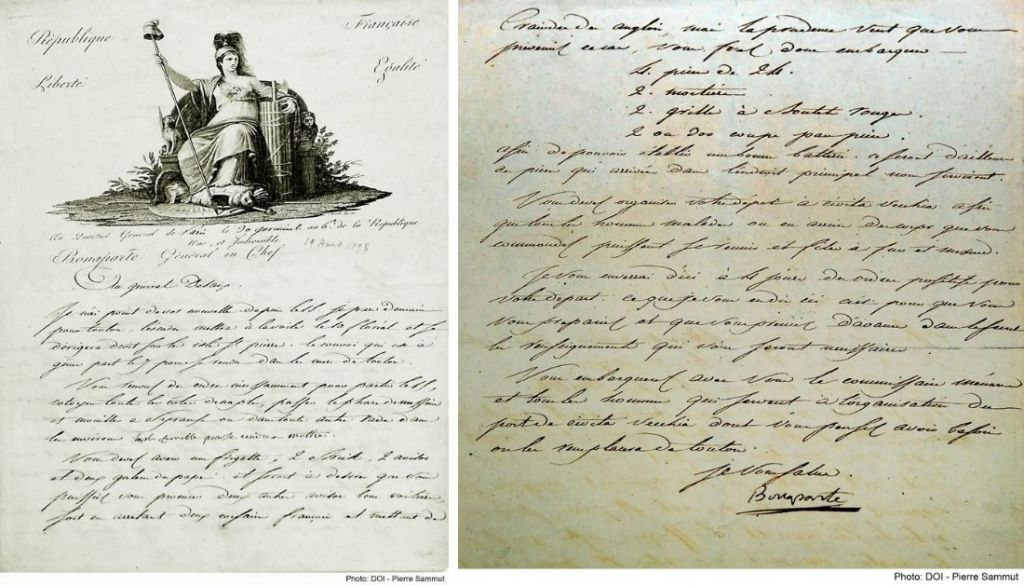 République Française
Liberté Egalité
Au Quartier Général de Paris le 30 germinal an 6e. de la République
Une et Indivisible
19 Avril 1798
Bonaparte Général en Chef
au general Desaix.
Je n'ai point de vos nouvelle depuis le je pars demain
pour toulon. mettra à la voile le floreal et se
dirigera droit sur les isles St. pierre. le convoi qui est à
gene part le 7 pour se rendre dans la rade de toulon.
Vous tenez de ordre pour partir le
cotoyer toute les cotes de naples, passer le phare de messine
et mouiller a Siracuse ou dans toute autre rade dans
les environs
Vous devez avoir une frigatte, 2 2 avisos
et deux galere du pape. il seroit à desirer que vous
puissiez vous procurer deux autre avisos bon voilier
soit en arretant deux corsaire français et mettant de
mai la prudence veut que vous
preveniez ce cas, vous ferez donc embarquer
4. piece de 24.
2. mortier
2. grille à boulet rouge
2 ou 300 coups par piece.
afin de pouvoir établir une bonne batterie. d'ailleur
ce piece qui arrivée dans l'endroit principal nous serviront.
Vous devez organiser votre depot a civita vechia afin
que tous les homme malades ou en arriere des corps que vous
commandez puissent se reunir et filer à fur et mesure.
Je vous enverrai d'ici à 4 jours des ordre positif pour
votre depart. ce que je vous en dis ici c'est pour que vous
vous prepariez et que vous preniez d'avance
les renseignement qui vous seront necessaire
Vous embarquerez avec vous le commissaire menard
et tous les homme qui servent à l'organisation du
port de civita vechia dont vous pensez avoir besoin
on les remplacera de toulon.
Je vous salue.
Bonaparte
Photo: DOI - Pierre Sammut
Photo: DOI - Pierre Sammut